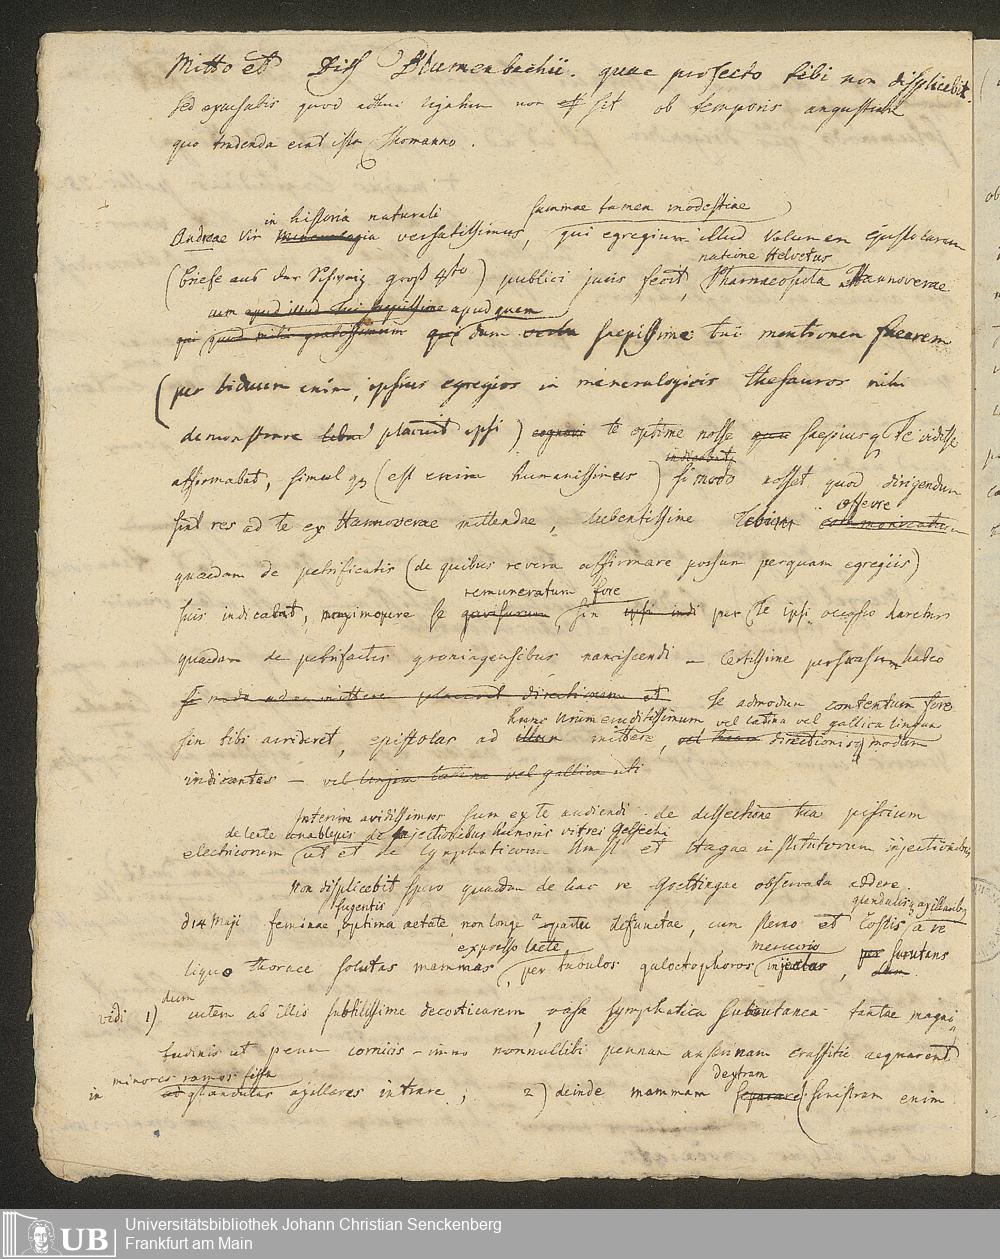 Mitto et Diss Blumenbachii. quae profecto tibi non displicebit.
sed excusabis quod adhuc ligatum non sit ob temporis angustiam
quo tradenda erat ista Thomanno.
in historia naturali summae tamen modestiae
Andreae vir Mineralogia versatissimus, qui egregium illud Volumen Epistolarum
natione Helvetus
(Briefe aus der Schweiz groß 4to) publici juris fecit, Pharmacopola Hannoverae
cum apud illud tui saepissime apud quem
qui quod mihi gratissimum qui dum saepissime tui mentionem facerem
(per biduum enim, ipsius egregios in mineralogicis thesauros mihi
demonstrare placuit ipsi) cognovi te optime nosse saepiusq Te vidisse
indicabat
affirmabat, simul q (est enim humanissimus) si modo nosset quod dirigendum
offerre
sint res ad te ex Hannoverae mittendae, lubentissime Tibi communicaturum
quaedam de petrificatis (de quibus revera affirmare possum perquam egregiis)
remuneratum fore
suis indicabat, maximopere se gavisurum, sin ipsi indi per Te ipsi occasio daretur
quaedam de petrifactis groningensibus nanciscendi – Certissime persuasum habeo
si modo ad eum mittere placeret directionem et Te admodum contentum fore
hunc virum eruditissimum vel latina vel gallica lingua
sin tibi arrideret, epistolas ad illum mittere, directionisq modum
indicantes – vel lingua latina vel gallica uti
Interim avidissimus sum ex te audiendi de dissectione tua piscium
de lente injectionibus humoris vitrei Gessechi
electricorum ut et de lymphaticorum Umsl et Hagae institutorum injectionibus
Non displicebit spero quaedam de hac re Goettingae observata addere.
fugentis glandulis axillaribus
d 14 Maji feminae, optima aetate, non longe a partu defunctae, cum sterno et Costis, a re
expresso lacte mercurio
liquo thorace solutas mammas, per tubulos galactophoros injectas, per scrutans
dum
vidi 1) cutem ab illis subtilissime decorticarem, vasa lymphatica subcutanea tantae magni
tudinis ut penn cornicis – imo nonnullibi pennam anserinam crassitie aequarent
minores ramos fissa
in ad glandulas axillares intrare; 2) deinde mammam dextram separare (sinistram enim
Universitätsbibliothek Johann Christian Senckenberg
Frankfurt am Main
UB